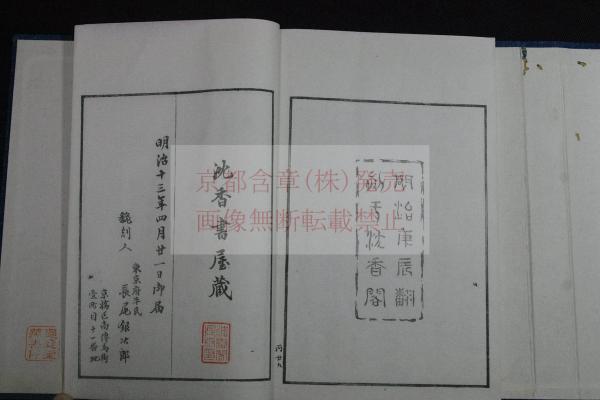 明治庚辰翻
刻于沈香閣
沈香書屋蔵
明治十三年四月廿一日御届
飜刻人
東京府平民
長尾銀次郎
京橋区南傳馬町
壹丁目十一番地
京都含章(株)発売
画像無断転載禁止